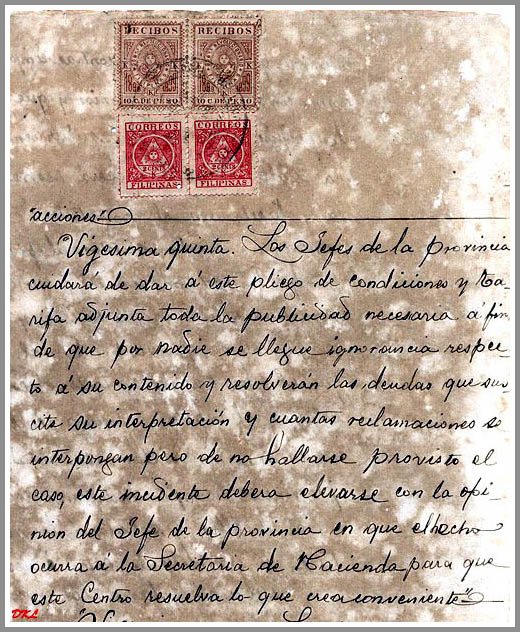 RECIBOS RECIBOS
10 C. DE PESO 10 C. DE PESO
CORREOS CORREOS
FILIPINAS FILIPINAS
"acciones"
Vigesima quinta. Los Jefes de la provincia
cuidará de dar á este pliego de condiciones y ta-
rifa adjunta toda la publicidad necesaria á fin
de que por nadie se llegue ignorancia respec-
to á su contenido y resolverán las deudas que sus-
cite su interpretación y cuantas reclamaciones se
interpongan pero de no hallarse provisto el
caso, este incidente debera elevarse con la opi-
nion del Jefe de la provincia en que el hecho
ocurra á la Secretaria de Hacienda para que
este Centro resuelva lo que crea conveniente"
DKL